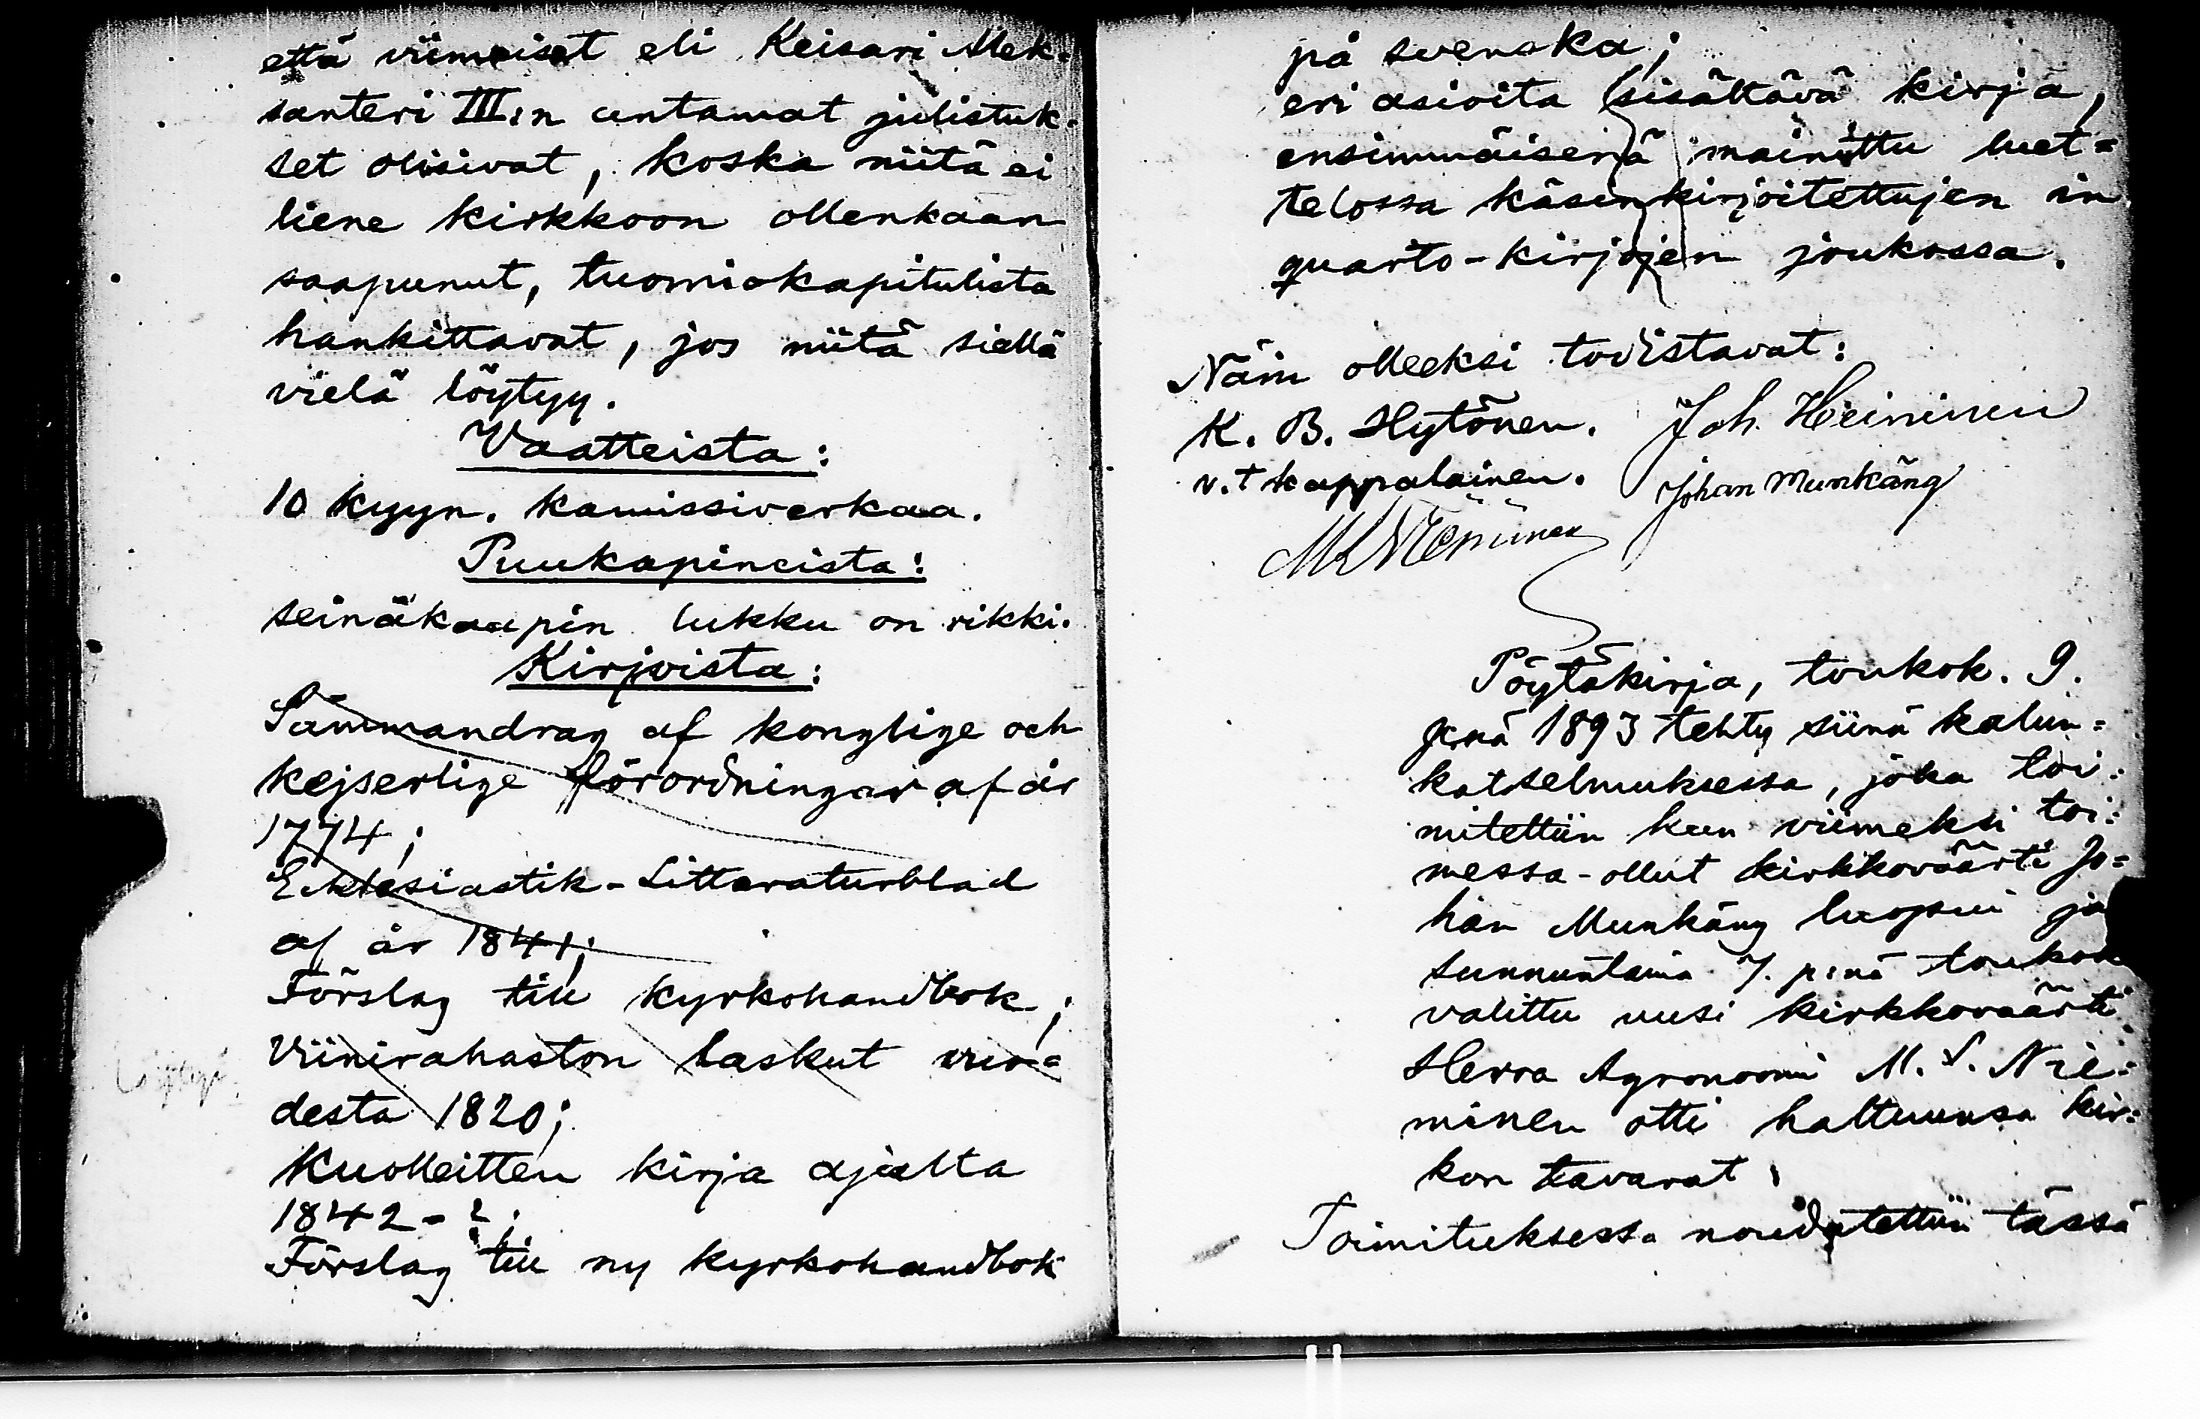 että viimeiset eli Keisari Alek-
santeri III:n antamat julistuk-
set olisivat, koska niitä ei
liene kirkkoon ollenkaan
saapunut, tuomiokapitulista
hankittavat, jos niitä siellä
vielä löytyy.
Vaatteista:
10 kyyn. kamissiverkaa.
Puukapineista:
seinäkaapin lukku on rikki.
Kirjoista:
Sammandrag af konglige och
kejserlige förordningar af år
1774;
Ecklesiastik-Litteraturblad
af år 1841;
Förslag till kyrkohandbok;
Viinirahaston laskut vuo=
desta 1820;
Kuolleitten kirja ajalta
1842-?;
Förslag till ny kyrkohandbok
på svenska;
eri asioita sisältävä kirja,
ensimmäisenä mainittu luet=
telossa käsinkirjoitettujen in
quarto-kirjojen joukossa.
Näin olleeksi todistavat:
K. B. Hytönen. Joh. Heininen
v.t. kappalainen. Johan Munkäng
Pöytäkirja, toukok. 9.
p:nä 1893 tehty siinä kalun=
katselmuksessa, joka toi=
mitettiin kun viimeksi toi=
messa-ollut kirkkoväärti Jo=
han Munkäng luopui ja
sunnuntaina 7. p:nä toukok
valittu uusi kirkkoväärti
Herra Agronoomi M. L. Nie=
minen otti haltuunsa kir=
kon tavarat.
Toimituksessa noudatettiin tässä